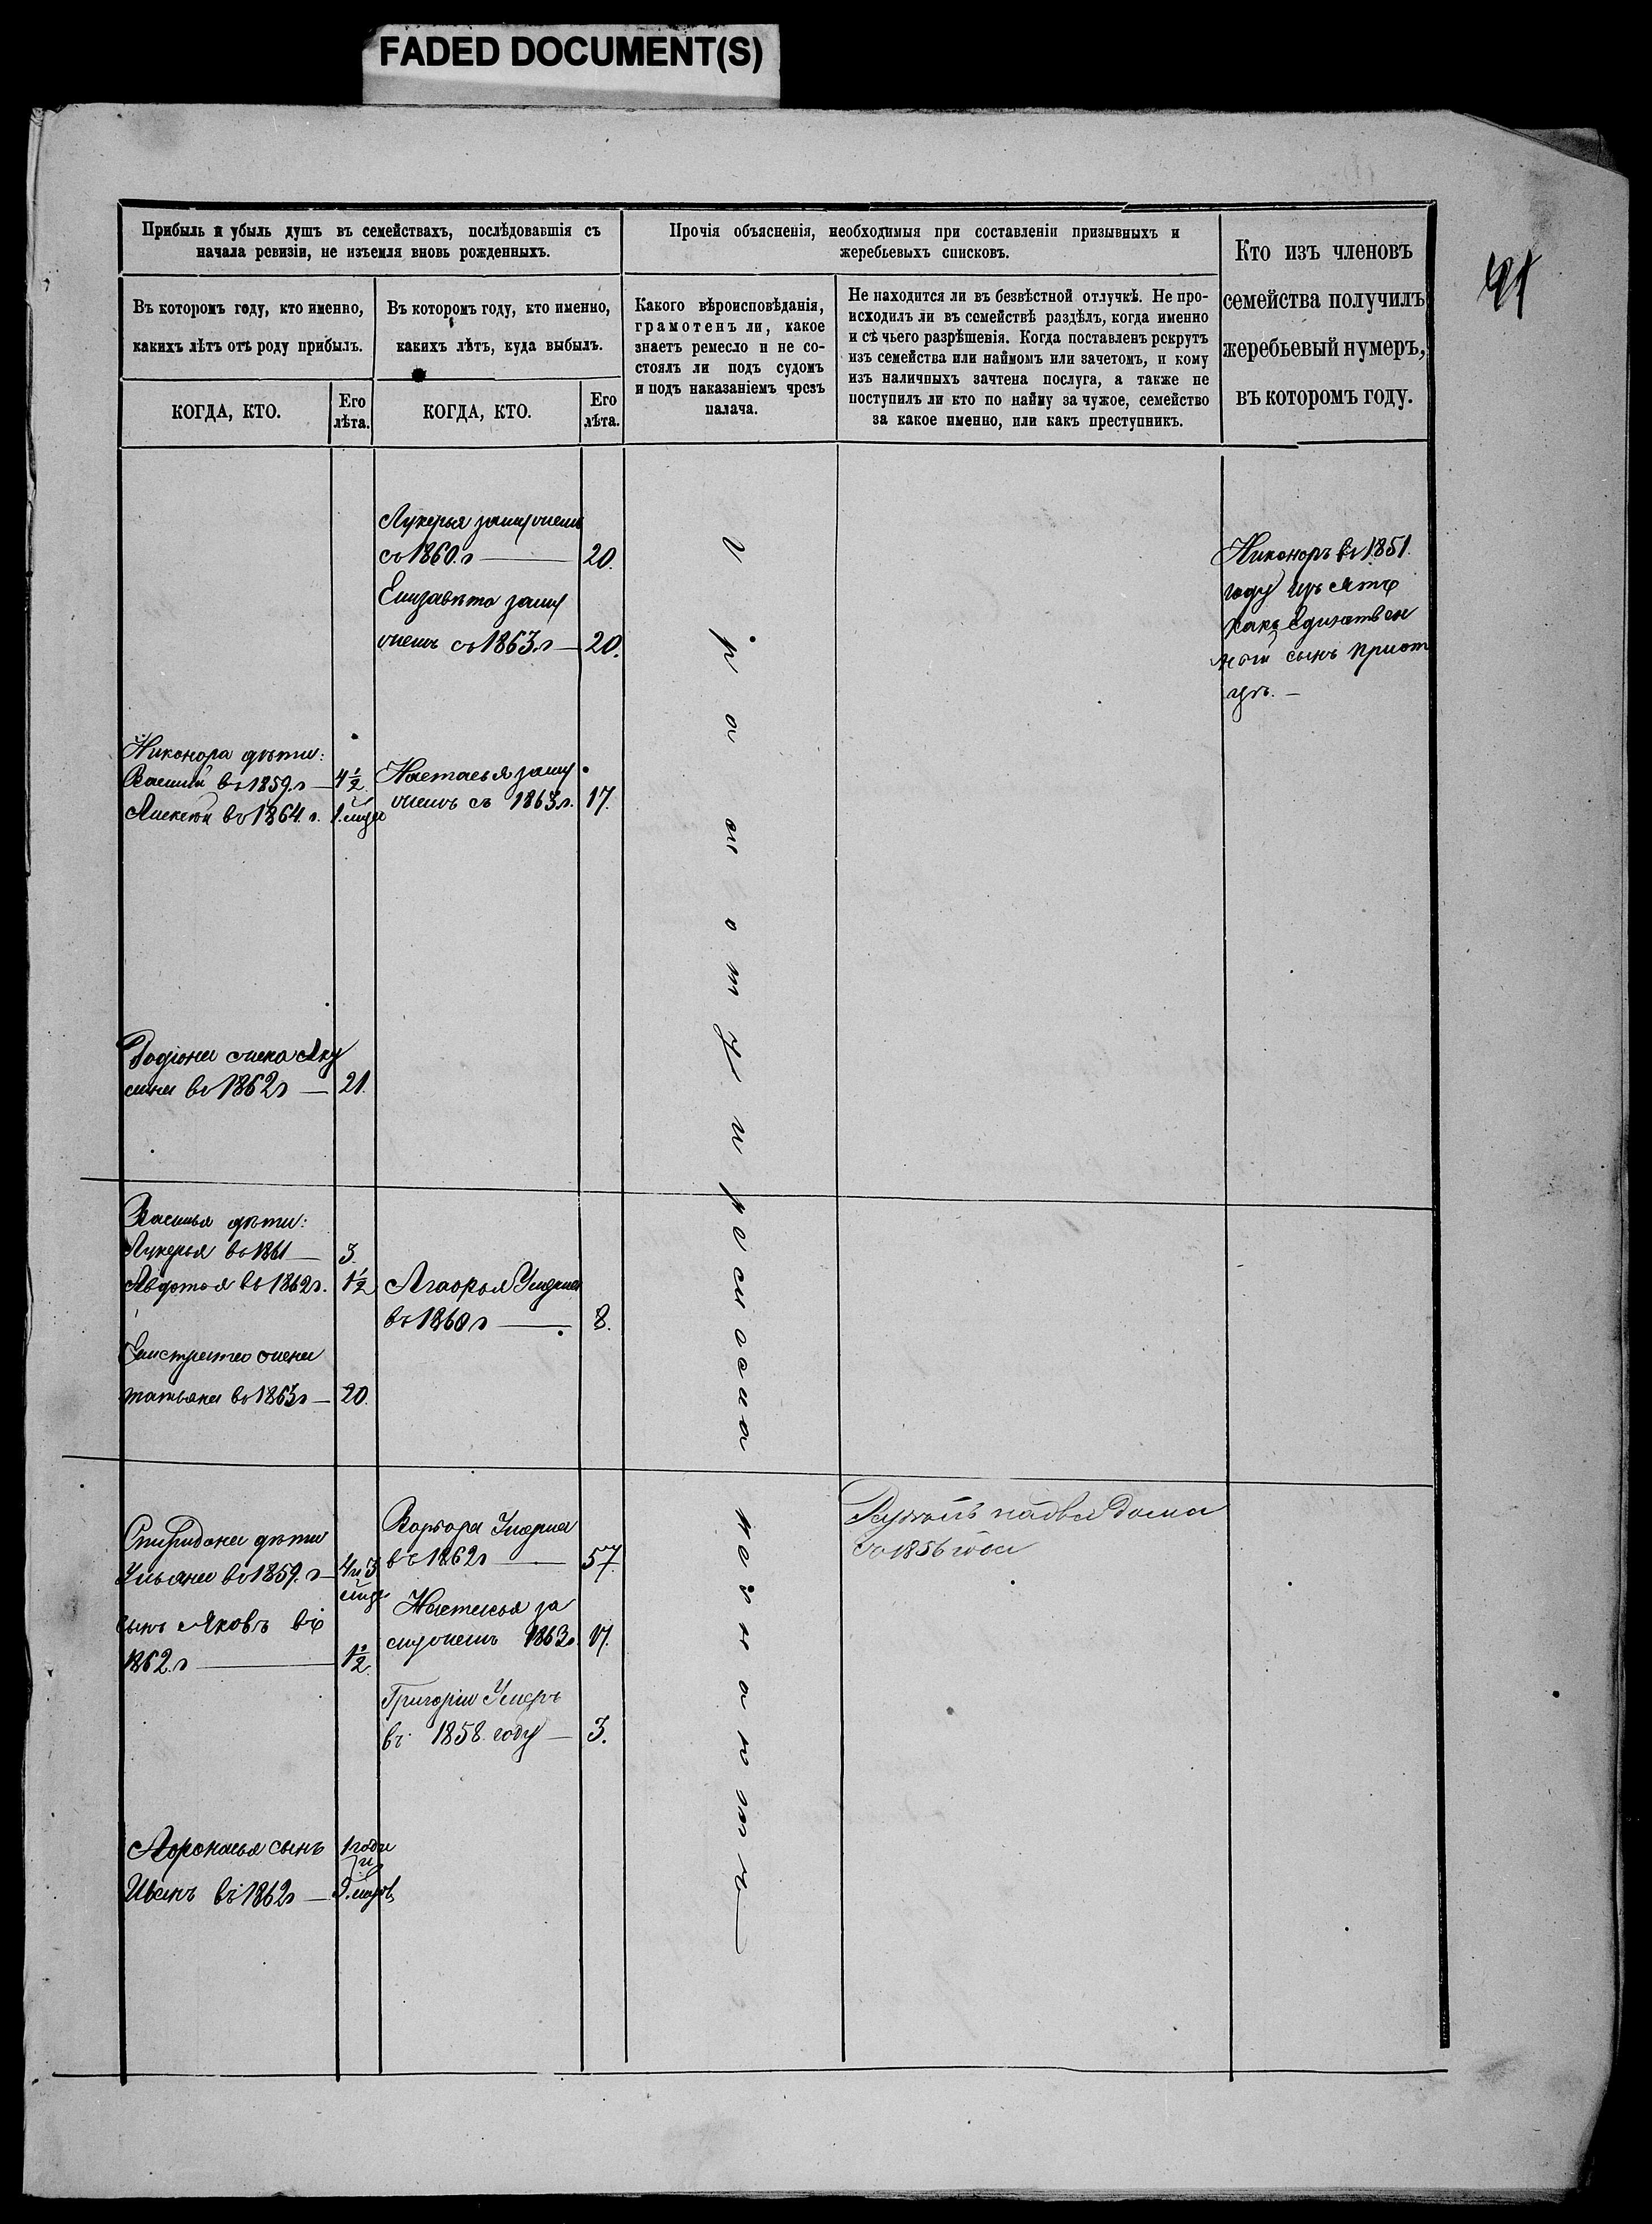 FADED DOCUMENT(S)
Прибыль и убыль душъ въ семействахъ, послѣдовавшія съ
начала ревизіи, не изъемля вновь рожденныхъ.
Прочія объясненія, необходимыя при составленіи призывныхъ и
жеребьевыхъ списковъ.
Кто изъ членовъ
семейства получилъ
жеребьевый нумеръ,
въ которомъ году.
Въ которомъ году, кто именно,
какихъ лѣтъ отъ роду прибылъ.
Въ которомъ году, кто именно,
какихъ лѣтъ, куда выбылъ.
Какого вѣроисповѣданія,
грамотенъ ли, какое
знаетъ ремесло и не со-
стоялъ ли подъ судомъ
и подъ наказаніемъ чрезъ
палача.
Не находится ли въ безвѣстной отлучкѣ. Не про-
исходилъ ли въ семействѣ раздѣлъ, когда именно
и съ чьего разрѣшенія. Когда поставленъ рекрутъ
изъ семейства или наймомъ или зачетомъ, и кому
изъ наличныхъ зачтена послуга, а также не
поступилъ ли кто по найму за чужое, семейство
за какое именно, или какъ преступникъ.
КОГДА, КТО.
Его
лѣта.
КОГДА, КТО.
Его
лѣта.
Лукерья замужемъ
съ 1860. г — 20.
Елизавета заму
жемъ съ 1863. г — 20.
Никоноръ въ 1851.
году изъятъ
какъ Единствен
ной сынъ при от
цѣ. —
Никонора дѣти:
Василій въ 1859. г — 4 1/2
Алексѣй въ 1864. г. 1.
Настасья заму
жемъ съ 1863 г. 17.
Родіона жена Аку
лина въ 1862 г — 21.
Василья дѣти:
Лукерья въ 1861 — 3.
Авдотья въ 1862 г. 1 1/2
Агафья Умерла
въ 1860 г — 8.
жена
татьяна въ 1863 г — 20.
Спиридона дѣти
Ульяна въ 1859. г — 4 и 3
сынъ Яковъ въ
1862. г — 1 1/2
Варвара Умерла
въ 1862 г — 57.
Настасья за
мужемъ 1863 г. 17.
Григорій Умеръ
въ 1858. году — 3.
съ 1856 года
Афонасья сынъ 1 года
и
Иванъ въ 1862 г — 9.